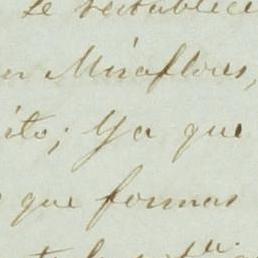 se restablece
en Miraflores,
ito; Ya que
que formas